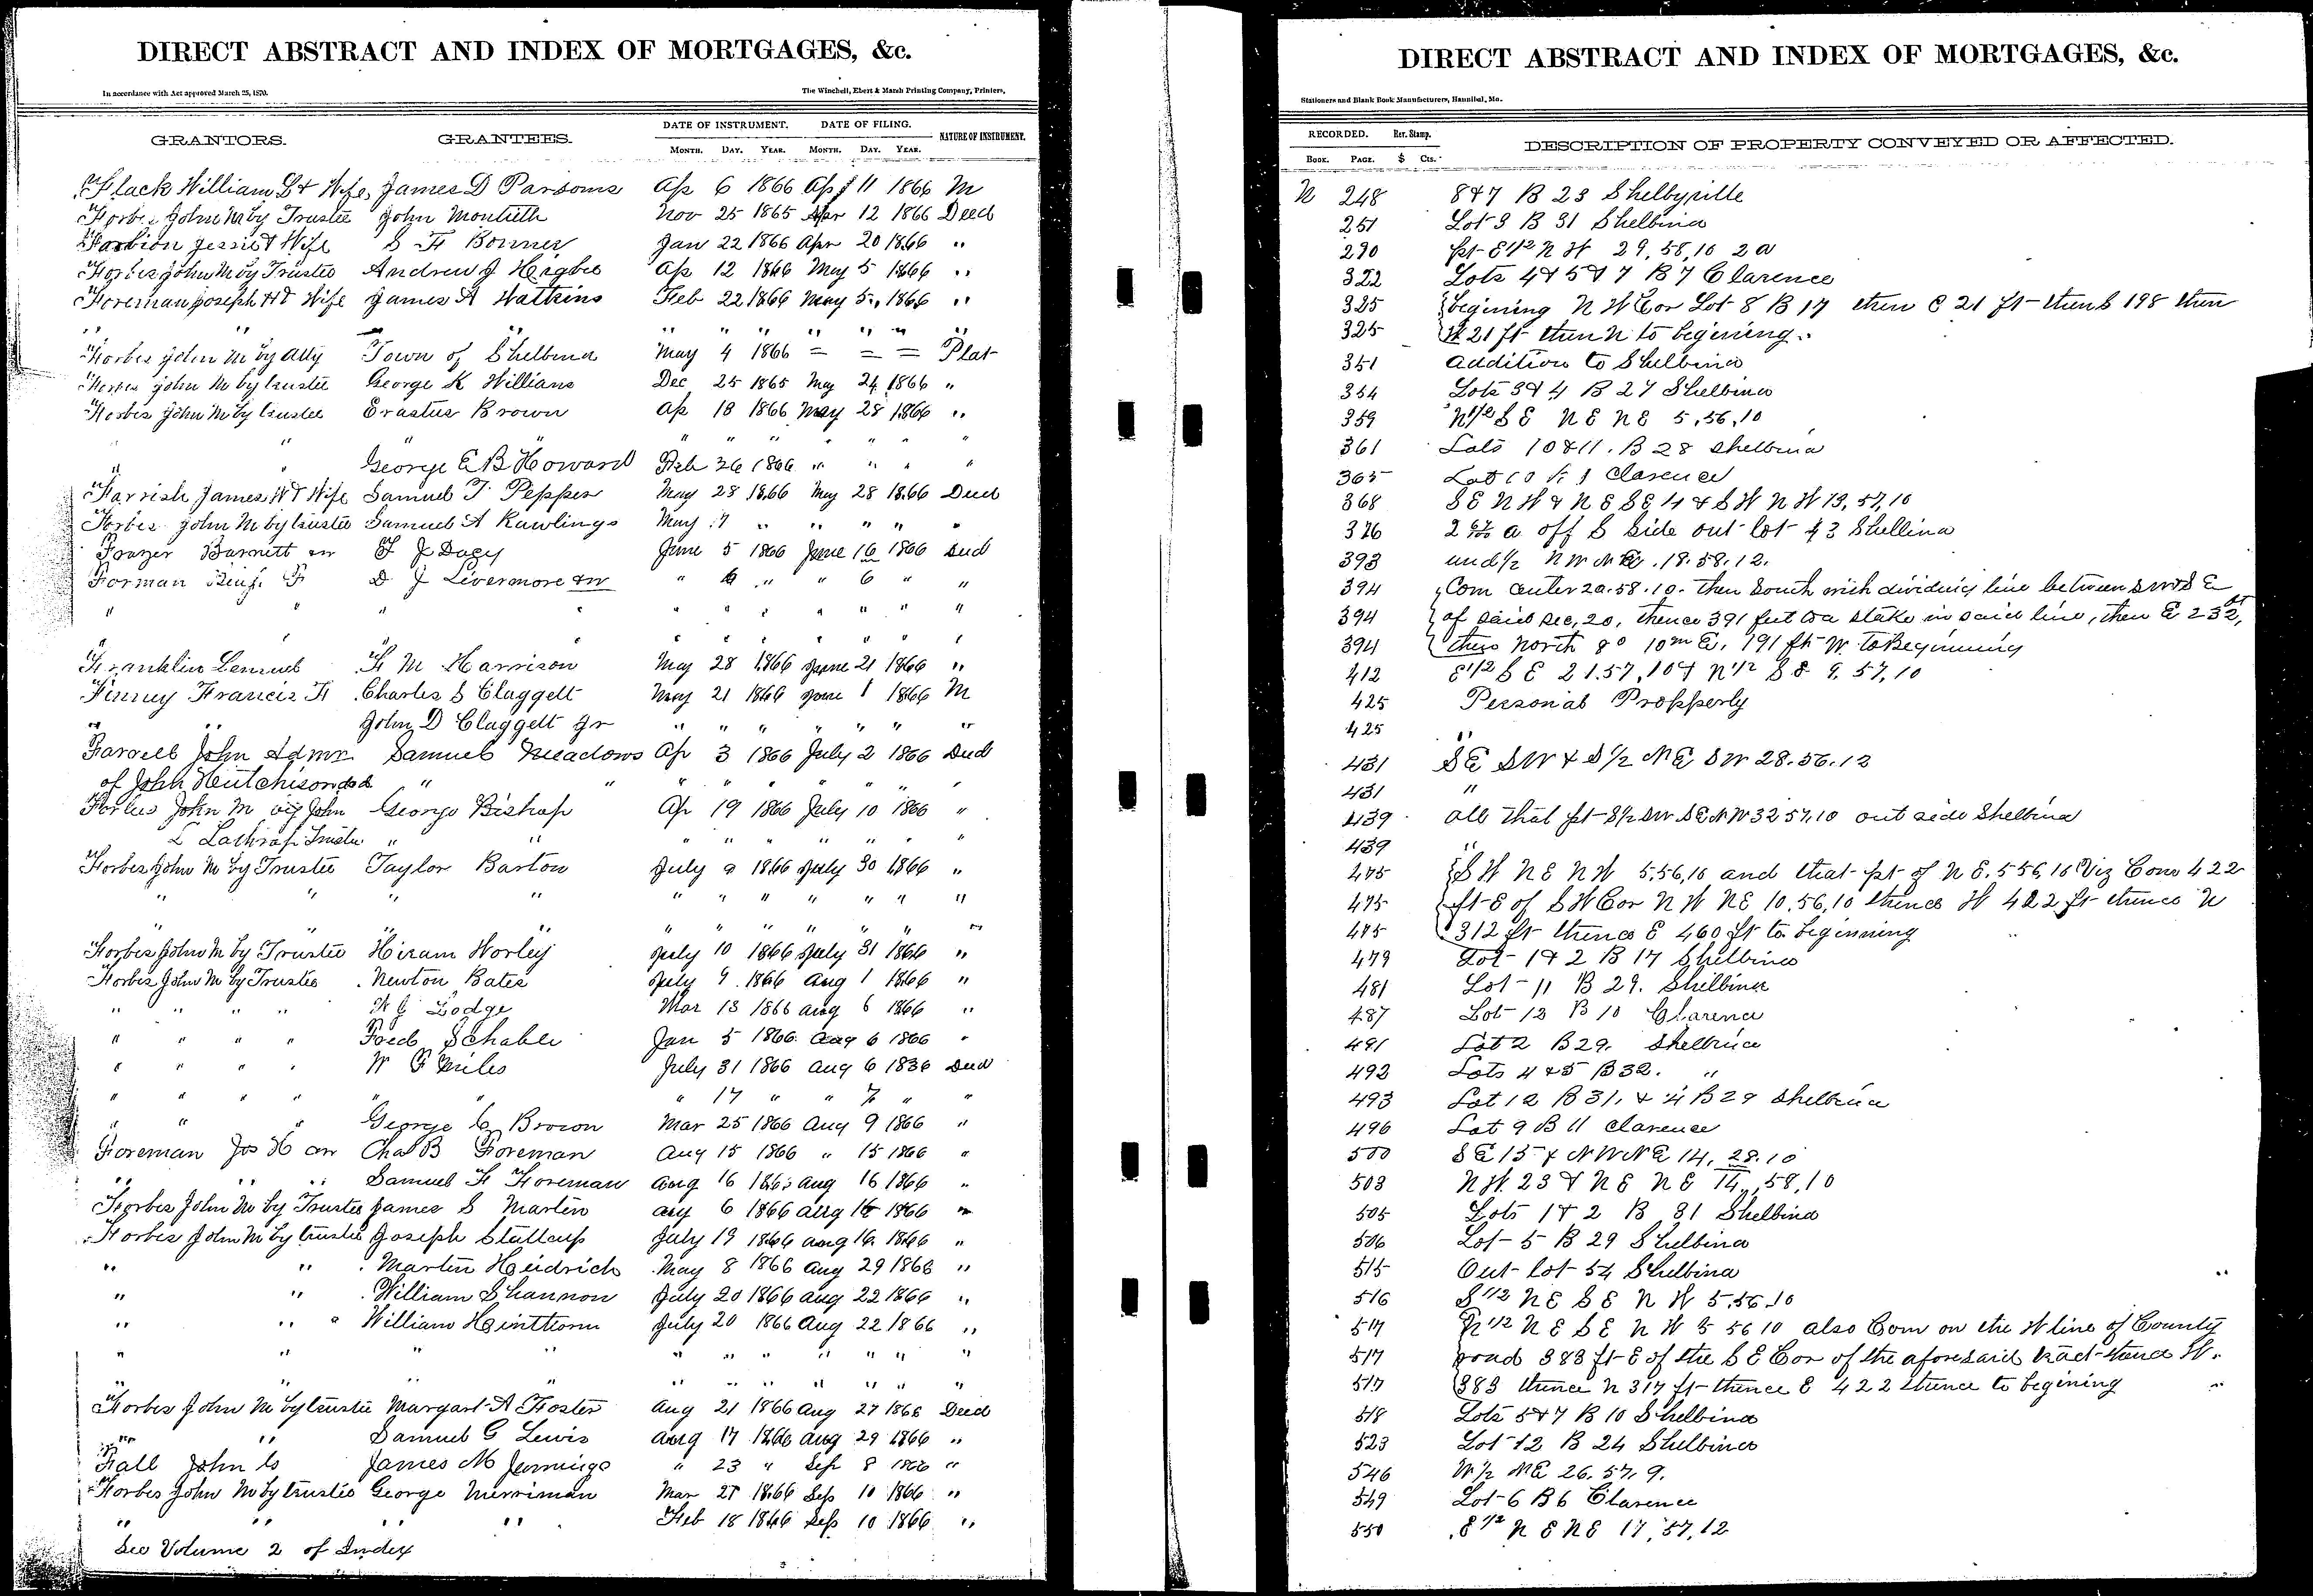 DIRECT ABSTRACT AND INDEX OF MORTGAGES, &c.
In accordance with Act approved March 25, 1870.
The Winchell, Ebert & Marsh Printing Company, Printers,
GRANTORS.
GRANTEES.
DATE OF INSTRUMENT.
DATE OF FILING.
NATURE OF INSTRUMENT.
MONTH. DAY. YEAR. MONTH. DAY. YEAR.
Flack William & Wife, James D Parsons Ap 6 1866 Ap 11 1866 M
Forbes John M by Trustee John Montieth Nov 25 1865 Apr 12 1866 Deed
Jessie & Wife S F Bonner Jan 22 1866 Apr 20 1866 "
Forbes John M by Trustee Andrew J Higbee Ap 12 1866 May 5 1866 "
Foreman Joseph H & Wife James A Watkins Feb 22 1866 May 5, 1866 "
" " " " " " " " "
Forbes John M by Atty Town of Shelbina May 4 1866 = = = Plat
Forbes John M by trustee George K Williams Dec 25 1865 May 24 1866 "
Forbes John M by trustee Erastus Brown Ap 18 1866 May 28 1866 "
" " " " " " " " "
" " George E B Howard Feb 26 1866 " " " "
Farrish James W & Wife Samuel T Pepper May 28 1866 May 28 1866 Deed
Forbes John M by trustee Samuel A Rawlings May 7 " " " " "
Frazer Barnett June 5 1866 June 16 1866 Deed
Forman Benj. F D J Livermore &w " 6 " " 6 " "
" " " " " " " " " " "
" " " " " " " " "
Franklin Lemuel F M Harrison May 28 1866 June 21 1866 "
Finney Francis F Charles S Claggett May 21 1866 June 1 1866 M
" " John D Claggett Jr " " " " " " "
Farrell John Admr. Samuel Meadows Ap 3 1866 July 2 1866 Deed
of John Hutchison decd " " " " " " " " "
Forbes John M by John George Bishop Ap 19 1866 July 10 1866 "
L Lathrop Trustee " " " " " " " " "
Forbes John M by Trustee Taylor Barton July 9 1866 July 30 1866 "
" " " " " " " " " " "
" " " " " " " " " " "
Forbes John M by Trustee Hiram Worley July 10 1866 July 31 1866 "
Forbes John M by Trustee Newton Bates July 9 1866 Aug 1 1866 "
" " " " Lodge Mar 13 1866 Aug 6 1866 "
" " " " Fred Schable Jan 5 1866 Aug 6 1866 "
" " " " W F Miles July 31 1866 Aug 6 1836 Deed
" " " " " " " 17 " " 7 " "
" " " George C Brown Mar 25 1866 Aug 9 1866 "
Foreman Jos H Chas B Foreman Aug 15 1866 " 15 1866 "
" " " Samuel F Foreman Aug 16 1866 Aug 16 1866 "
Forbes John M by Trustee James S Martin Aug 6 1866 Aug 16 1866 "
Forbes John M by trustee Joseph Stallcup July 19 1866 Aug 16 1866 "
" " Martin Heidrich May 8 1866 Aug 29 1866 "
" " William Shannon July 20 1866 Aug 22 1866 "
" " " William Hinthorn July 20 1866 Aug 22 1866 "
" " " " " " " " " " "
" " " " " " " " " " "
Forbes John M by trustee Margaret A Foster Aug 21 1866 Aug 27 1866 Deed
" " Samuel G Lewis Aug 17 1866 Aug 29 1866 "
Fall John C James M Jennings " 23 " Sep 8 1866 "
Forbes John M by trustee George Merriman Mar 27 1866 Sep 10 1866 "
" " " " Feb 18 1866 Sep 10 1866 "
See Volume 2 of Index
DIRECT ABSTRACT AND INDEX OF MORTGAGES, &c.
Stationers and Blank Book Manufacturers, Hannibal, Mo.
RECORDED. Rev. Stamp.
DESCRIPTION OF PROPERTY CONVEYED OR AFFECTED.
BOOK. PAGE. $ Cts.
N 248 8&7 B 23 Shelbyville
251 Lot 3 B 31 Shelbina
290 pt E 1/2 N W 29, 58, 10 2 a
322 Lots 4 & 5 & 7 B 7 Clarence
325 begining N W Cor Lot 8 B 17 then E 21 ft then S 198 then
325 W 21 ft then N to begining.
351 Addition to Shelbina
354 Lots 3 & 4 B 27 Shelbina
359 N 1/2 S E N E N E 5, 56, 10
361 Lots 10 & 11. B 28 Shelbina
365 Lot 10 Clarence
368 S E N W & N E S E 14 & S W N W 13, 57, 10
376 a off S Side out lot 43 Shelbina
393 und 1/2 N W N E. 18. 58. 12.
394 Com center 20. 58. 10. then South with dividing line between S W & S E
394 of said Sec, 20, thence 391 feet to a stake in said line, then E 232 ft,
394 then North 8° 10m E, 191 ft W. to Beginning
412 E 1/2 S E 21. 57, 10 & N 1/2 S E 9, 57, 10
425 Personal Propperty
425 "
431 S E S W & S 1/2 N E S W 28. 56. 12
431 "
439 all that pt S 1/2 S W S E N W 32 57, 10 out side Shelbina
439 "
475 S W N E N W 5, 56, 10 and that pt of N E. 5 56, 10 Viz Com 422
475 ft E of S W Cor N W N E 10, 56, 10 thence W 422 ft thence N
475 312 ft thence E 460 ft to beginning
479 Lot 1 & 2 B 17 Shelbina
481 Lot 11 B 29. Shelbina
487 Lot 12 B 10 Clarence
491 Lot 2 B 29. Shelbina
492 Lots 4 & 5 B 32. "
493 Lot 12 B 31, & 4 B 29 Shelbina
496 Lot 9 B 11 Clarence
500 S E 15 & N W N E 14, 28. 10
503 N W. 23 & N E N E 14, 58, 10
505 Lots 1 & 2 B 31 Shelbina
506 Lot 5 B 29 Shelbina
515 Out lot 54 Shelbina
516 S 1/2 N E S E N W 5. 56. 10
517 N 1/2 N E S E N W 5 56 10 also Com on the W line of County
517 road 383 ft E of the S E Cor of the aforesaid tract thence W.
517 383 thence N 317 ft thence E 422 thence to begining
518 Lots 5 & 7 B 10 Shelbina
523 Lot 12 B 24 Shelbina
546 W 1/2 N E 26. 57. 9.
549 Lot 6 B 6 Clarence
550 E 1/2 N E N E 17, 57, 12